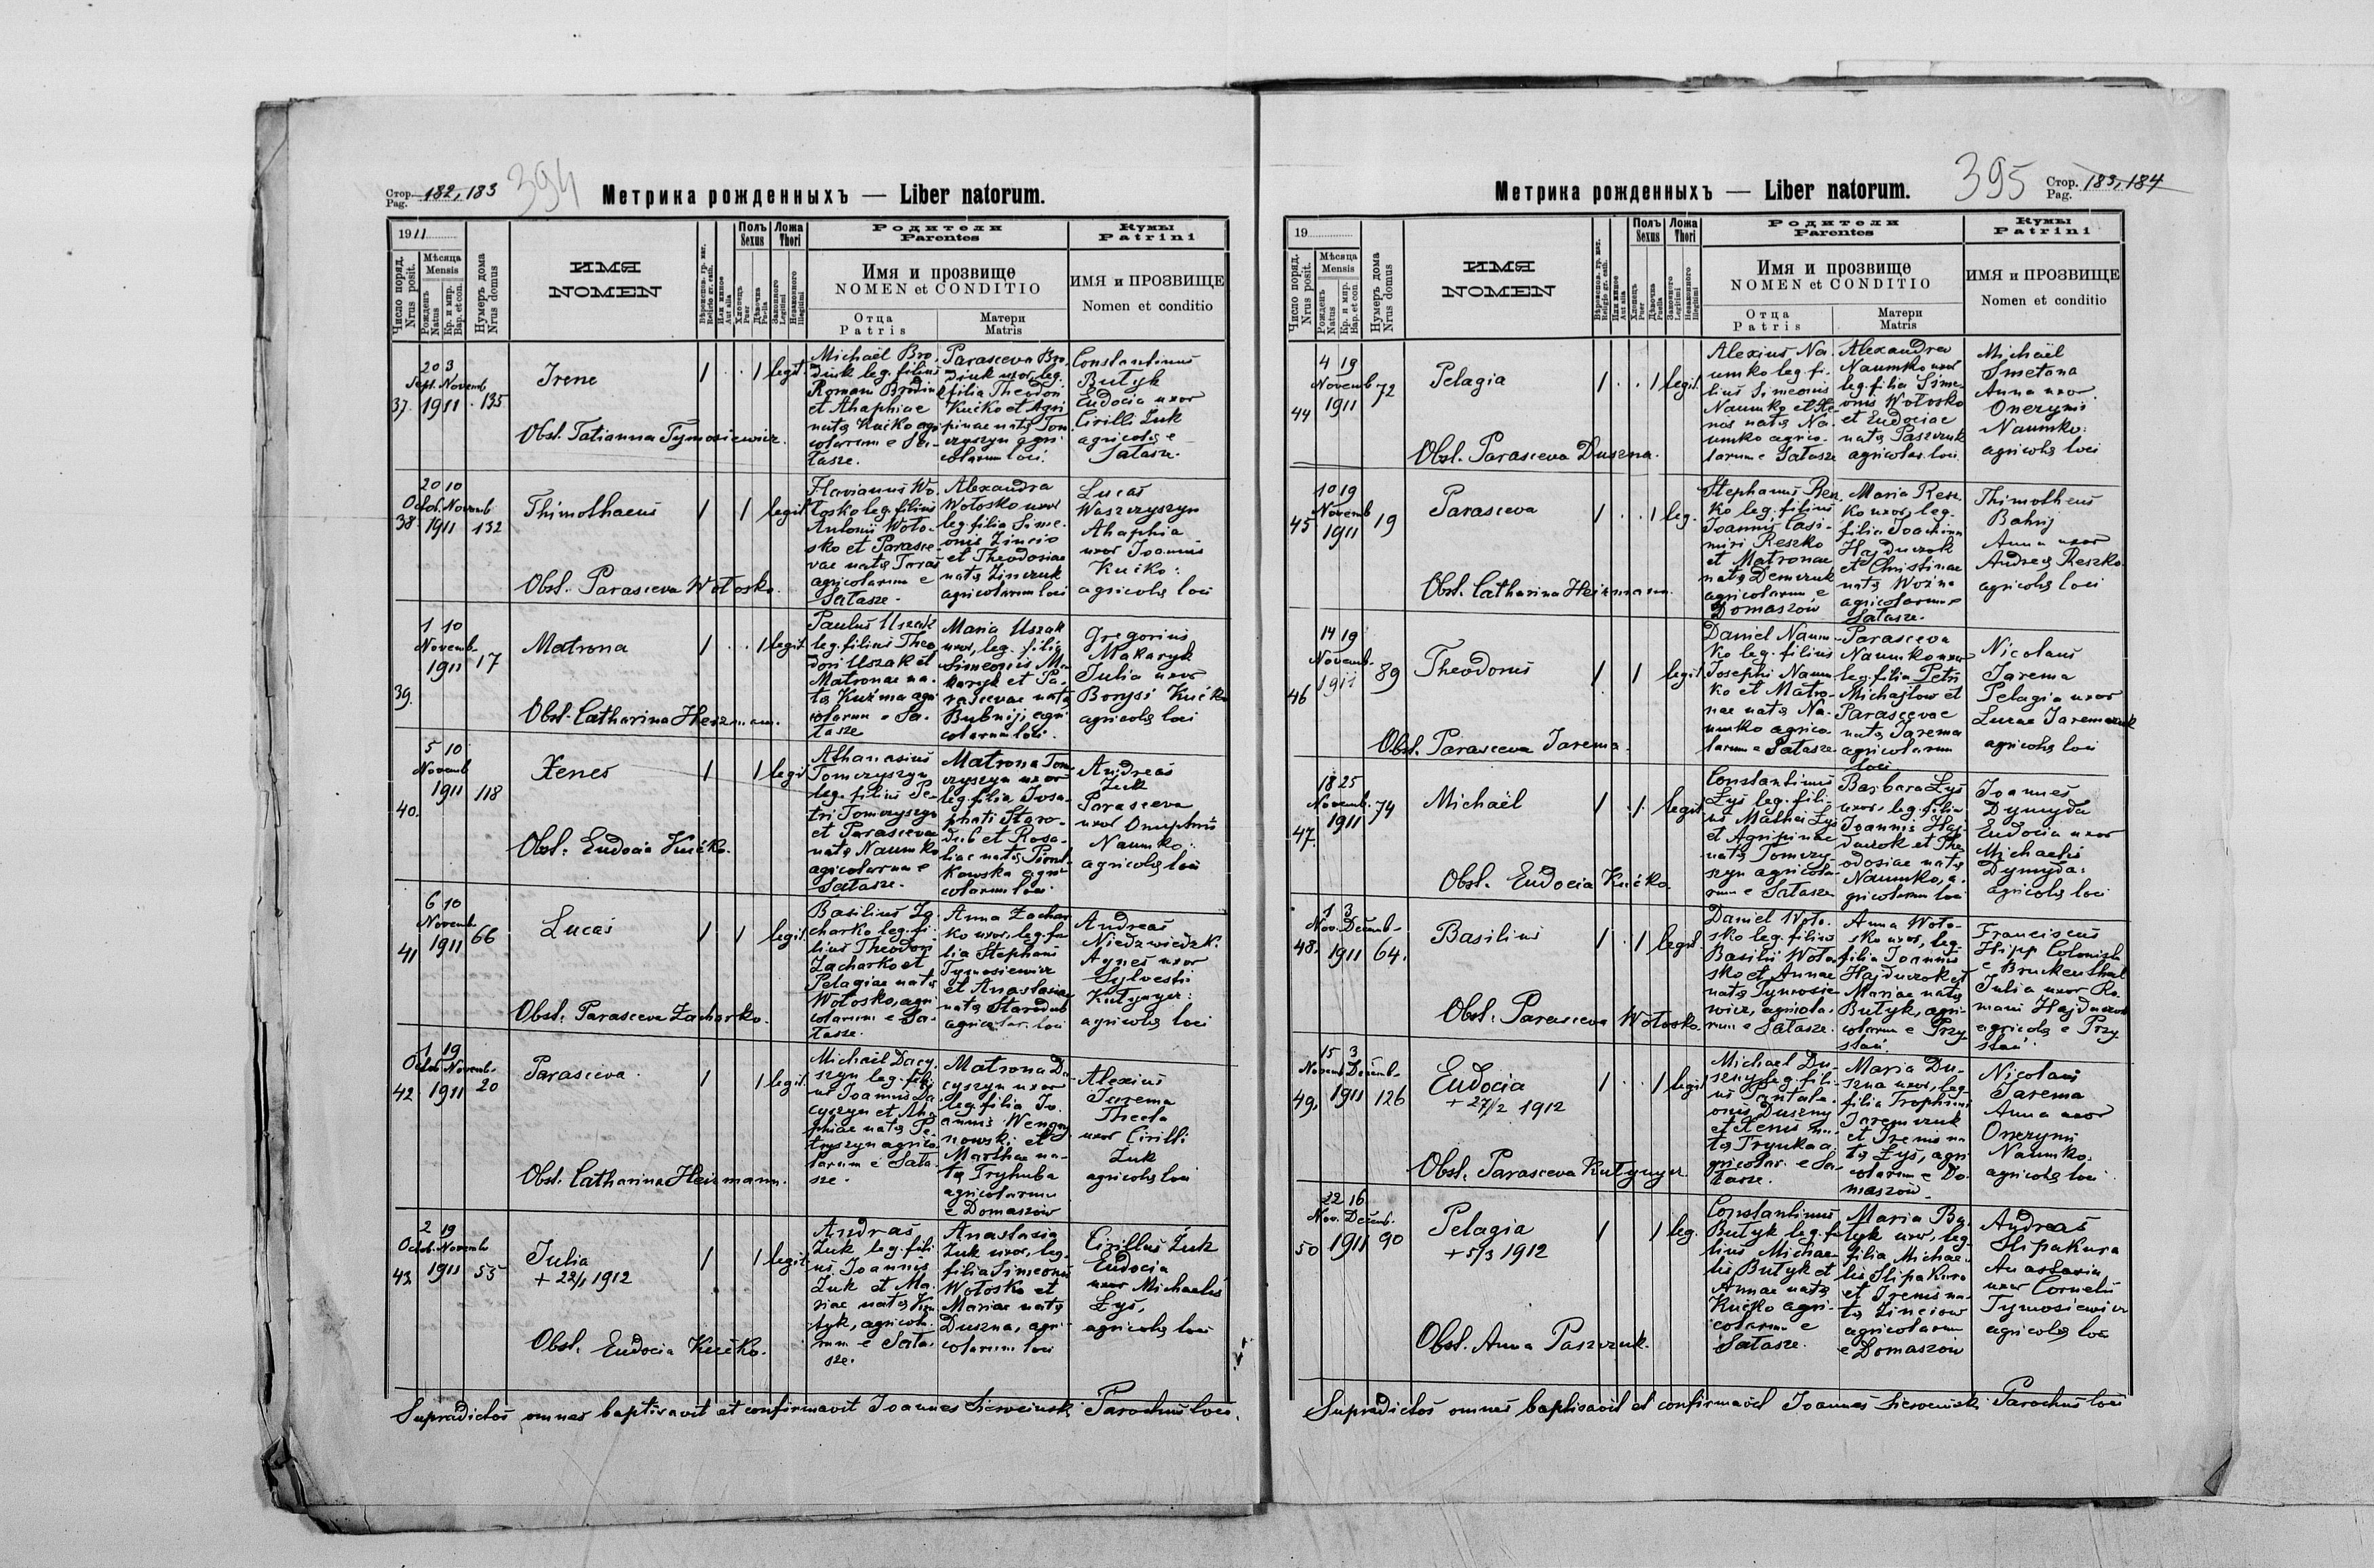 Стор. Pag. 182, 183
394
Метрика рожденныхъ — Liber natorum.
1911
Число поряд. Nrus posit.
Мѣсяца Mensis
Рожденъ Natus
Кр. и мир. Bap. et con.
Нумеръ дома Nrus domus
ИМЯ
NOMEN
Вѣроиспов. гр. кат. Religio gr. cath.
Или инное Aut alia
Полъ Sexus
Хлопецъ Puer
Дѣвочка Puella
Ложа Thori
Законного Legitimi
Незаконного Illegitimi
Родители
Parentes
Имя и прозвище
NOMEN et CONDITIO
Отца
Patris
Матери
Matris
Кумы
Patrini
ИМЯ и ПРОЗВИЩЕ
Nomen et conditio
37.
20 3
Sept. Novemb
1911 135
Irene
Obst. Tatianna Tymosiewicz.
1 1 legit.
Michaël Bro-
diuk leg. filius
Romani Brodiuk
et Ahaphiae
nata Kućko agri
colarum e Sa-
łasze.
Parasceva Bro-
diuk uxor, leg.
filia Theodori
Kućko et Agri
pinae nata Tom
czyszyn agri
colarum loci.
Constantinus
Butyk
Eudocia uxor
Cirilli Żuk
agricolæ e
Sałasze.
38
20 10
Octob. Novemb
1911 132
Thimothaeus
Obst. Parasceva Wołosko.
1 1 legit.
Flavianus Wo-
łosko leg. filius
Antonii Woło-
sko et Parasce-
vae nata Taras
agricolarum e
Sałasze.
Alexandra
Wołosko uxor
leg. filia Sime-
onis Zincio
et Theodosiae
nata Zinczuk
agricolarum loci
Lucas
Waszczyszyn
Ahaphia
uxor Joannis
Kućko:
agricolæ loci
39.
1 10
Novemb.
1911 17
Matrona
Obst. Catharina Heizmann.
1 1 legit.
Paulus Uszak
leg. filius Theo
dori Uszak et
Matronae na-
ta Kuźma agri
colarum e Sa-
łasze
Maria Uszak
uxor, leg. filia
Simeonis Ma-
karyk et Pa-
rascevae nata
Bubnij, agri
colarum loci.
Gregorius
Makaryk
Julia uxor
Boryssi Kućko
agricolæ loci
40.
5 10
Novemb
1911 118
Xenes
Obst. Eudocia Kućko.
1 1 legit.
Athanasius
Tomczyszyn
leg. filius Pe-
tri Tomczyszyn
et Parascevae
nata Naumko
agricolarum e
Sałasze.
Matrona Tom
czyszyn uxor
leg. filia Josa-
phati Staro-
dub et Rosa-
liae nata Piont-
kowska agri
colarum loci
Andreas
Żuk
Parasceva
uxor Onuphrii
Naumko:
agricolæ loci
41
6 10
Novemb.
1911 66
Lucas
Obst. Parasceva Zacharko.
1 1 legit.
Basilius Za-
charko leg. fi-
lius Theodori
Zacharko et
Pelagiae nata
Wołosko, agri
colarum e Sa-
łasze.
Anna Zachar
ko uxor, leg. fi
lia Stephani
Tymosiewicz
et Anastasiae
nata Starodub
agricolar. loci
Andreas
Niedzwiedzk.
Agnes uxor
Sylvestri
Kutynyer:
agricolæ loci
42
1 19
Octob Novemb.
1911 20
Parasceva
Obst. Catharina Heizmann.
1 1 legit.
Michaël Dacy-
szyn leg. fili-
us Joannis Da
cyszyn et Aha
phiae nata Pe-
tryszyn agrico
larum e Sała-
sze.
Matrona Da
cyszyn uxor
leg. filia Jo-
annis Wengry
nowski et
Marthae na-
ta Tryhuba
agricolarum
e Domaszów
Alexius
Jarema
Thecla
uxor Cirilli
Żuk
agricolæ loci
43.
2 19
Octob. Novemb
1911 55
Julia
+ 22/1 1912
Obst. Eudocia Kućko.
1 1 legit.
Andreas
Żuk leg. fili-
us Joannis
Żuk et Ma-
riae nata
agricola-
rum e Sała-
sze.
Anastasia
Żuk uxor, leg.
filia Simeonis
Wołosko et
Mariae nata
Duszna, agri-
colarum loci
Cirillus Żuk
Eudocia
uxor Michaelis
Łyś,
agricolæ loci
Supradictos omnes baptisavit et confirmavit Joannes Parochus loci.
395
Стор. Pag. 183, 184
Метрика рожденныхъ — Liber natorum.
19
Число поряд. Nrus posit.
Мѣсяца Mensis
Рожденъ Natus
Кр. и мир. Bap. et con.
Нумеръ дома Nrus domus
ИМЯ
NOMEN
Вѣроиспов. гр. кат. Religio gr. cath.
Или инное Aut alia
Полъ Sexus
Хлопецъ Puer
Дѣвочка Puella
Ложа Thori
Законного Legitimi
Незаконного Illegitimi
Родители
Parentes
Имя и прозвище
NOMEN et CONDITIO
Отца
Patris
Матери
Matris
Кумы
Patrini
ИМЯ и ПРОЗВИЩЕ
Nomen et conditio
44
4 19
Novemb
1911 72
Pelagia
Obst. Parasceva Duszna.
1 1 legit.
Alexius Na-
umko leg. fi-
lius Simeonis
Naumko et Xe-
niae nata Na-
umko agrico-
larum e Sałasze
Alexandra
Naumko uxor
leg. filia Sime-
onis Wołosko
et Eudociae
nata Paszczuk
agricolar. loci
Michaël
Smetana
Anna uxor
Onezymi
Naumko:
agricolæ loci
45
10 19
Novemb
1911 19
Parasceva
Obst. Catharina Heizmann.
1 1 leg.
Stephanus Resz
ko leg. filius
Joannis Casi-
miri Reszko
et Matronae
nata Demczuk
agricolarum e
Domaszów
Maria Resz
ko uxor, leg.
filia Joachimi
Hajduczok
et Christinae
nata Woźna
agricolarum e
Sałasze.
Thimotheus
Bahrij
Anna uxor
Andreæ Reszko
agricolæ loci
46
14 19
Novemb.
1911 89
Theodorus
Obst. Parasceva Jarema.
1 1 legit.
Daniel Naum-
ko leg. filius
Josephi Naum
ko et Matro-
nae nata Na-
umko agrico-
larum e Sałasze
Parasceva
Naumko uxor
leg. filia Petri
Michajłow et
Parascevae
nata Jarema
agricolarum
loci
Nicolaus
Jarema
Pelagia uxor
Lucae Jaremczuk
agricolæ loci
47.
18 25
Novemb.
1911 74
Michaël
Obst. Eudocia Kućko.
1 1 legit.
Constantinus
Łyś leg. fili-
us Mathei Łyś
et Agripinae
nata Tomczy-
szyn agricola-
rum e Sałasze
Barbara Łyś
uxor, leg. filia
Joannis Haj-
duczok et The
odosiae nata
Naumko, a-
gricolarum loci
Joannes
Dymyda
Eudocia uxor
Michaelis
Dymyda:
agricolæ loci
48.
1 3
Nov. Decemb.
1911 64.
Basilius
Obst. Parasceva Wołosko.
1 1 legit.
Daniel Woło-
sko leg. filius
Basilii Woło
sko et Annae
nata Tymosie
wicz, agricola-
rum e Sałasze.
Anna Woło-
sko uxor, leg.
filia Joannis
Hajduczok et
Mariae nata
Butyk, agri-
colarum e Przy
stań.
Franciscus
Hipp Colonista
e Bruckenthal
Julia uxor Ro-
mani Hajduczok
agricolæ e Przy
stań.
49.
15 3
Novemb Decemb.
1911 126
Eudocia
+ 27/2 1912
Obst. Parasceva Kutynyer
1 1 legit.
Michael Du-
szny leg. fili-
us Pantale-
onis Duszny
et Xenis na-
ta Trynka a-
gricolar. e Sa-
łasze.
Maria Du-
szna uxor, leg.
filia Trophimi
Jaremczuk
et Irenis na
ta Łyś, agri
colarum e Do-
maszów.
Nicolaus
Jarema
Anna uxor
Onezymi
Naumko.
agricolæ loci
50
22 16
Nov. Decemb.
1911 90
Pelagia
+ 5/3 1912
Obst. Anna Paszczuk.
1 1 leg.
Constantinus
Butyk leg. fi-
lius Michae-
lis Butyk et
Annae nata
Kućko agri-
colarum e
Sałasze.
Maria Bu-
tyk uxor, leg.
filia Michae-
lis Slipakura
et Irenis na-
ta Zinciow
agricolarum
e Domaszów
Andreas
Slipakura
Anastasia
uxor Cornelii
Tymosiewicz
agricolæ loci
Supradictos omnes baptisavit et confirmavit Joannes Parochus loci